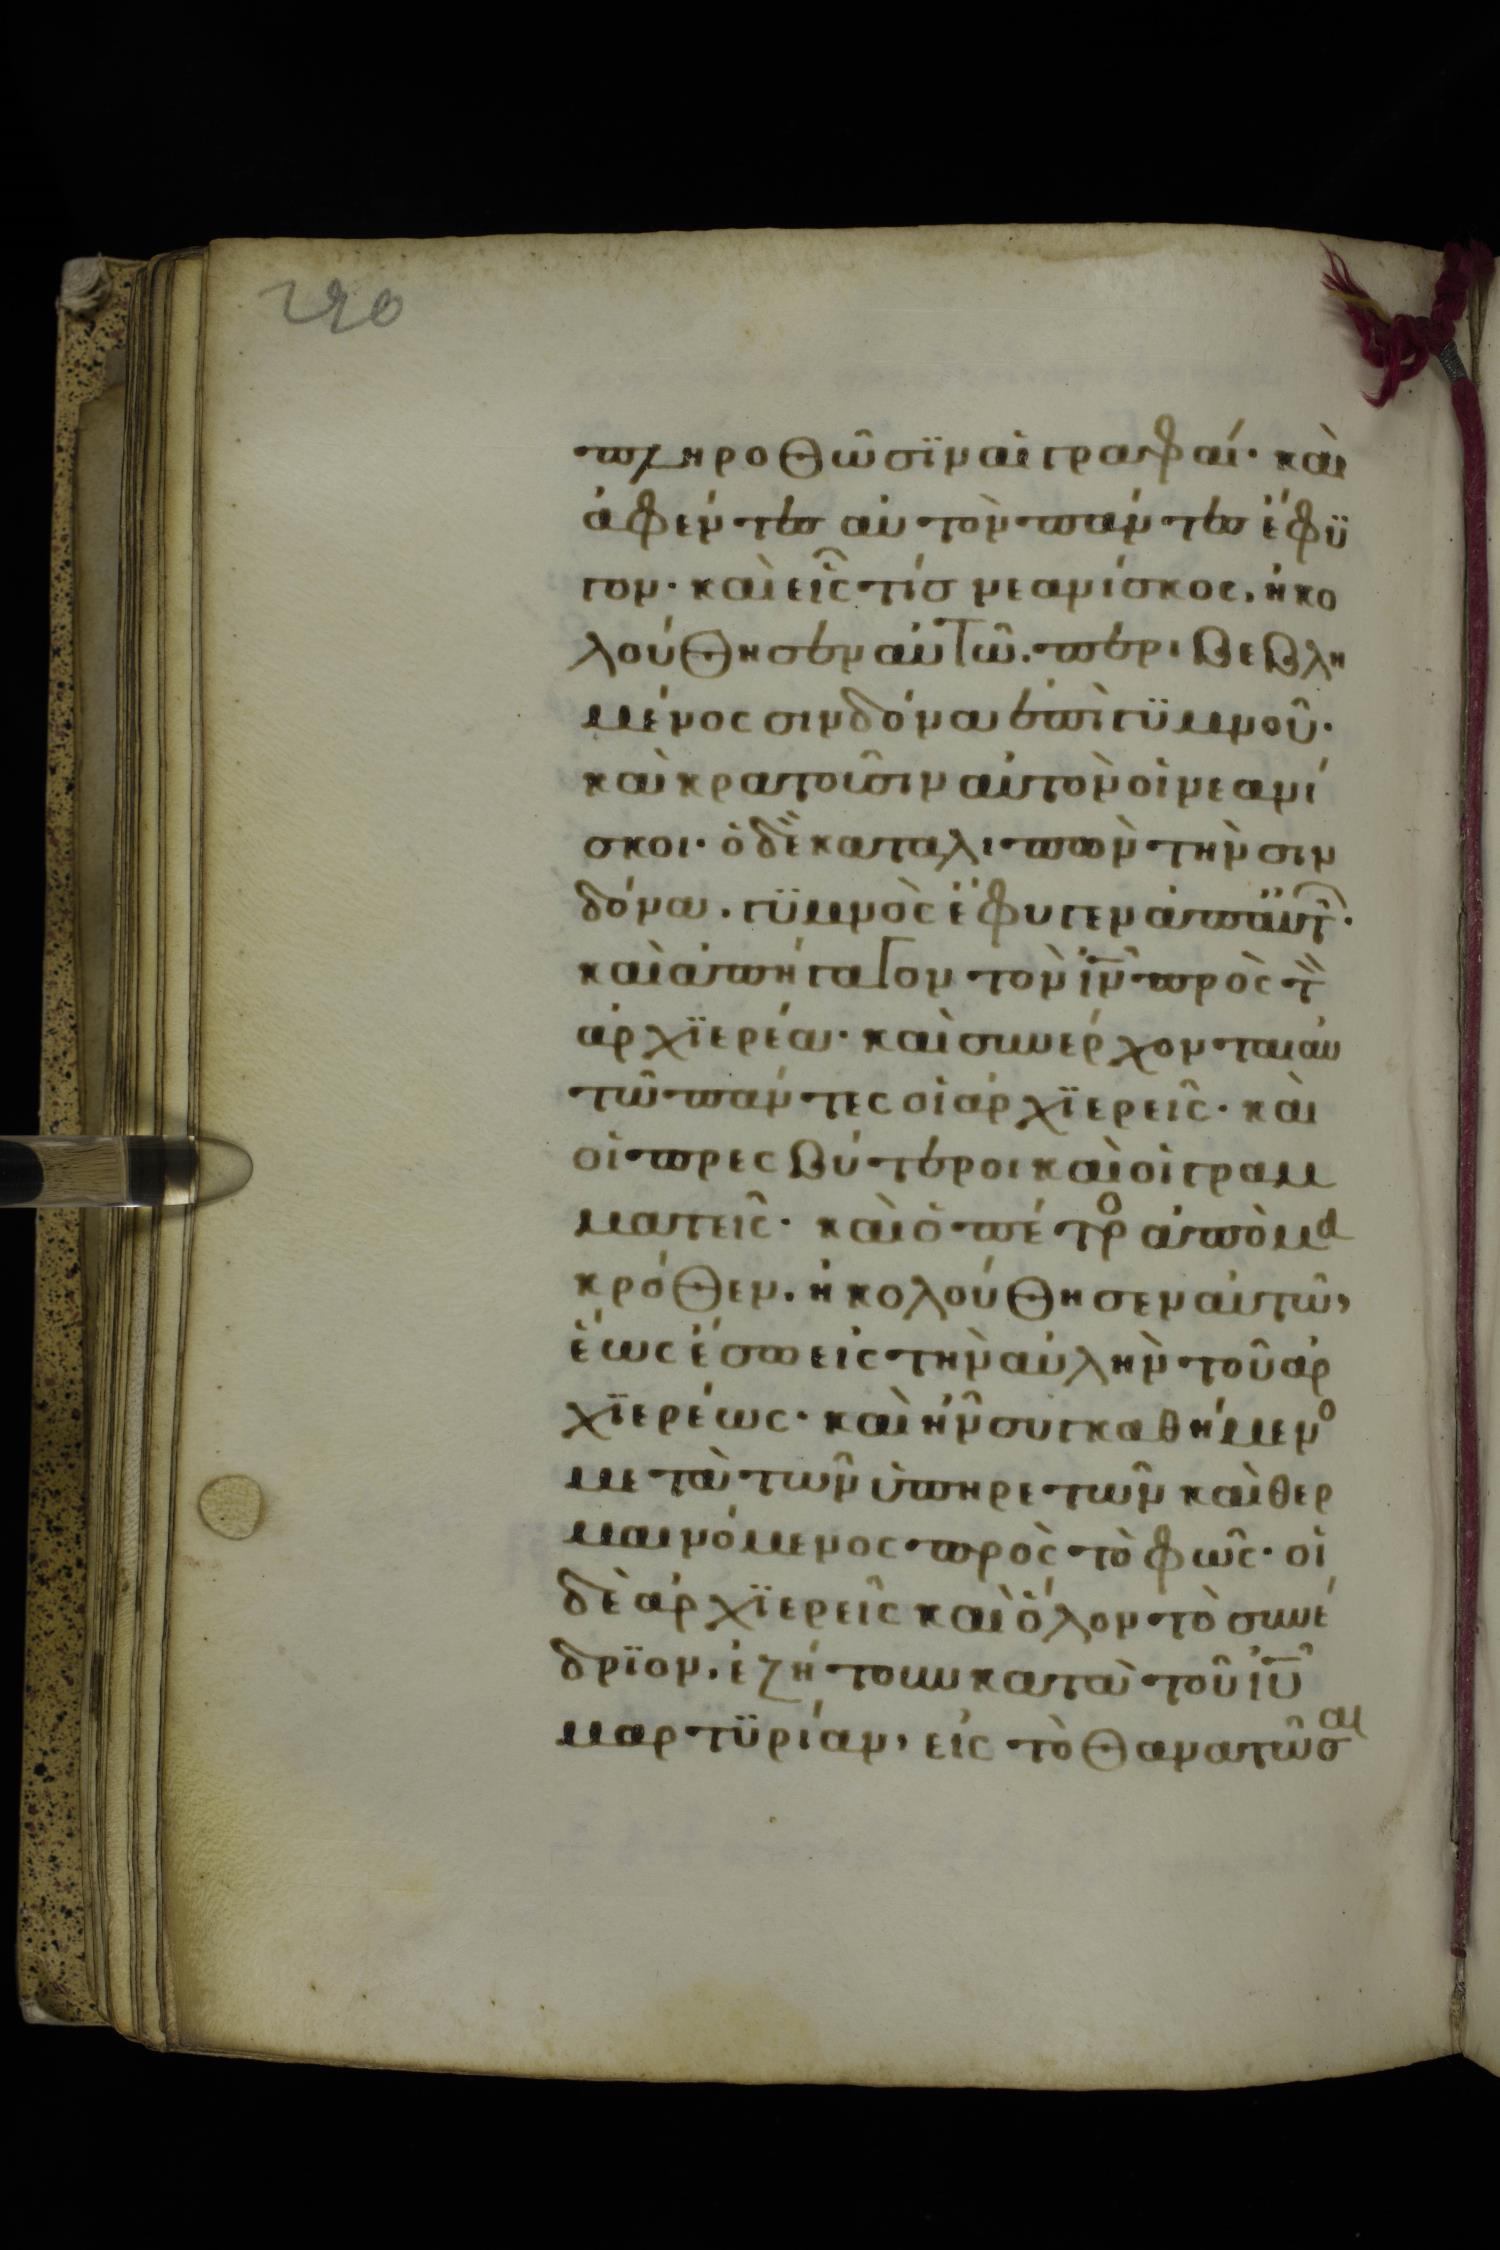 290
πληροθῶσϊν αἱ γραφαί· καὶ
ἀφέντες αὐτὸν πάντες ἔφϋ
γον· καὶ εἷς τίσ νεανίσκος. ἠκο
λούθησεν αὐτῶ. περιβεβλη
μένος σινδόνα ἐπὶ γϋμνοῦ·
καὶ κρατοῦσιν αὐτὸν οἱ νεανί
σκοι· ὁ δὲ καταλιπὼν τὴν σιν
δόνα. γϋμνὸς ἔφυγεν ἀπ αὐτ̑·
καὶ ἀπήγαγον τὸν ἰν̅ πρὸς τ̀
ἀρχϊερέα· καὶ συνέρχονται αὐ
τῶ πάντες οἱ ἀρχϊερεῖς· καὶ
οἱ πρεσβύτεροι καὶ οἱ γραμ
ματεῖς· καὶ ὁ πέτρο ἀπὸ μα
κρόθεν. ἠκολούθησεν αὐτῶ,
ἕως ἔσω εἰς τὴν αὐλὴν τοῦ ἀρ
χϊερέως· καὶ ἦν συγκαθήμενο
μετὰ τῶν ὑπηρετῶν καὶ θερ
μαινόμενος πρὸς τὸ φῶς· οἱ
δὲ ἀρχϊερεῖς καὶ ὅλον τὸ συνέ
δρϊον. ἐζήτουν κατὰ τοῦ ἰυ̅
μαρτϋρίαν, εἰς τὸ θανατῶσαι